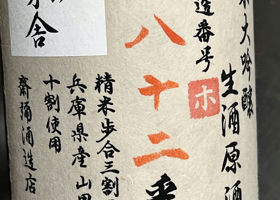 米大吟醸
生酒原酒
造番号
ホ
八十二番
精米歩合三割
兵庫県産山田
十割使用
齋彌酒造店
舎